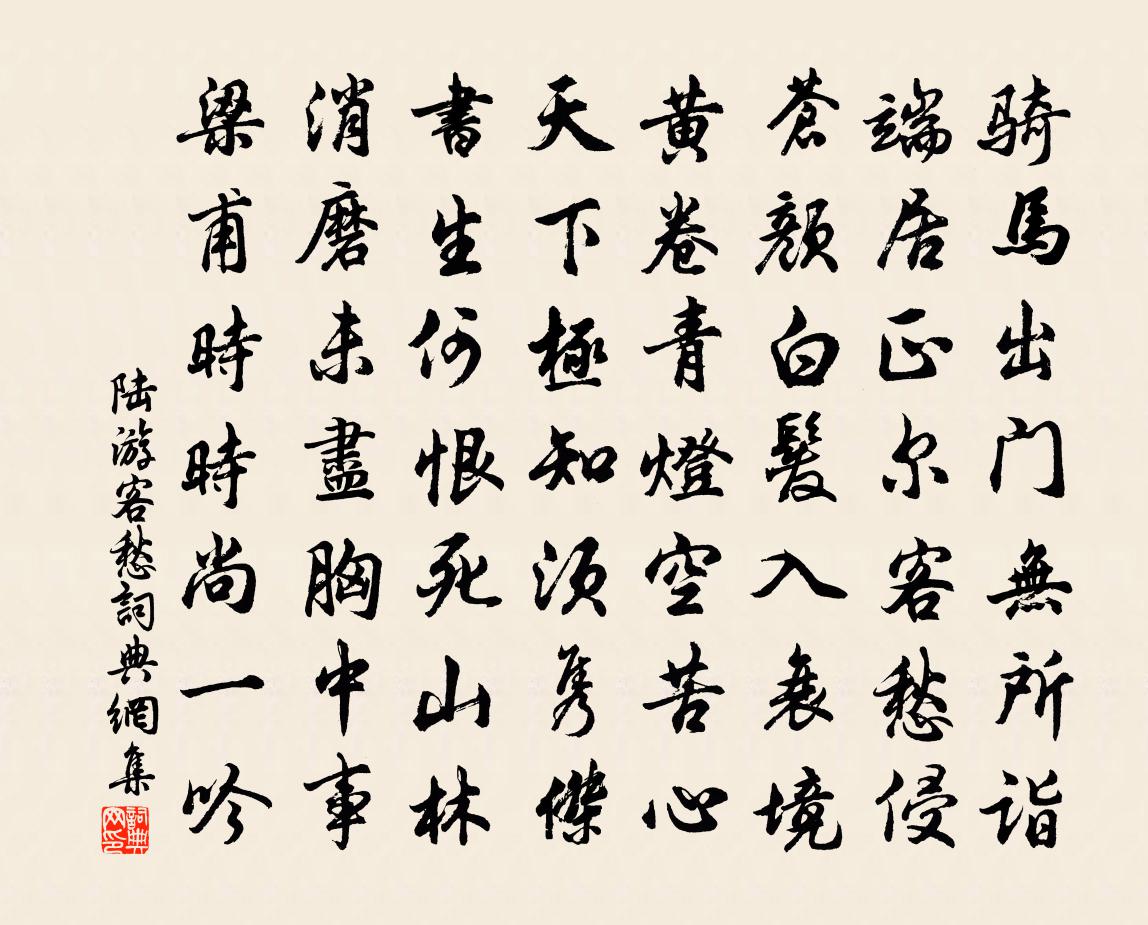 骑馬出门無所詣
端居正尔客愁侵
蒼顏白髮入衰境
黄卷青燈空苦心
天下極知須隽傑
書生何恨死山林
消磨未盡胸中事
梁甫時時尚一吟
陆游客愁詞典網集
詞典网印